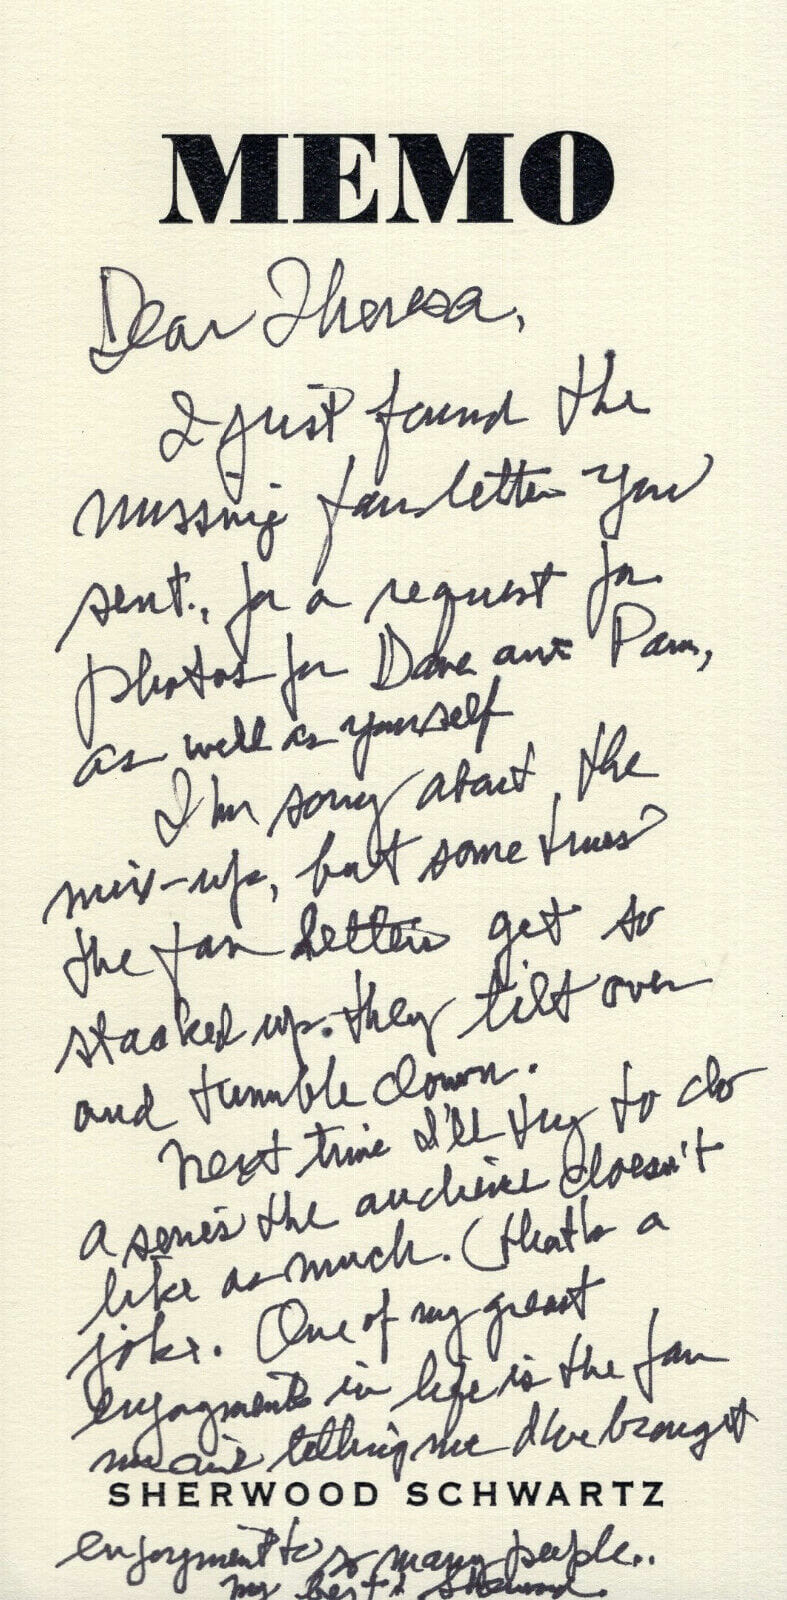 MEMO
Dear Theresa,
I just found the
missing fan letter you
sent., for a request for
photos for Dave and Pam,
as well as yourself
I'm sorry about the
mix-up, but some times
the fan letters get so
stacked up. they tilt over
and tumble down.
Next time I'll try to do
a series the audience doesn't
like as much. (that's a
joke. One of my great
enjoyments in life is the fan
mail telling me I've brought
SHERWOOD SCHWARTZ
enjoyment to so many people..
my best, Sherwood.